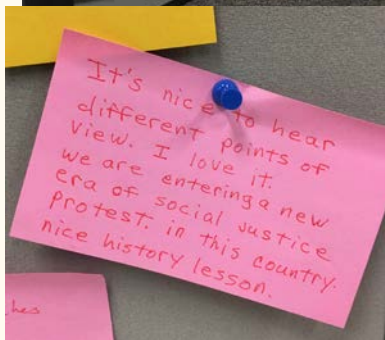 It's nice to hear
different points of
view. I love it.
we are entering a new
era of social justice
protest. in this country.
nice history lesson.
hes